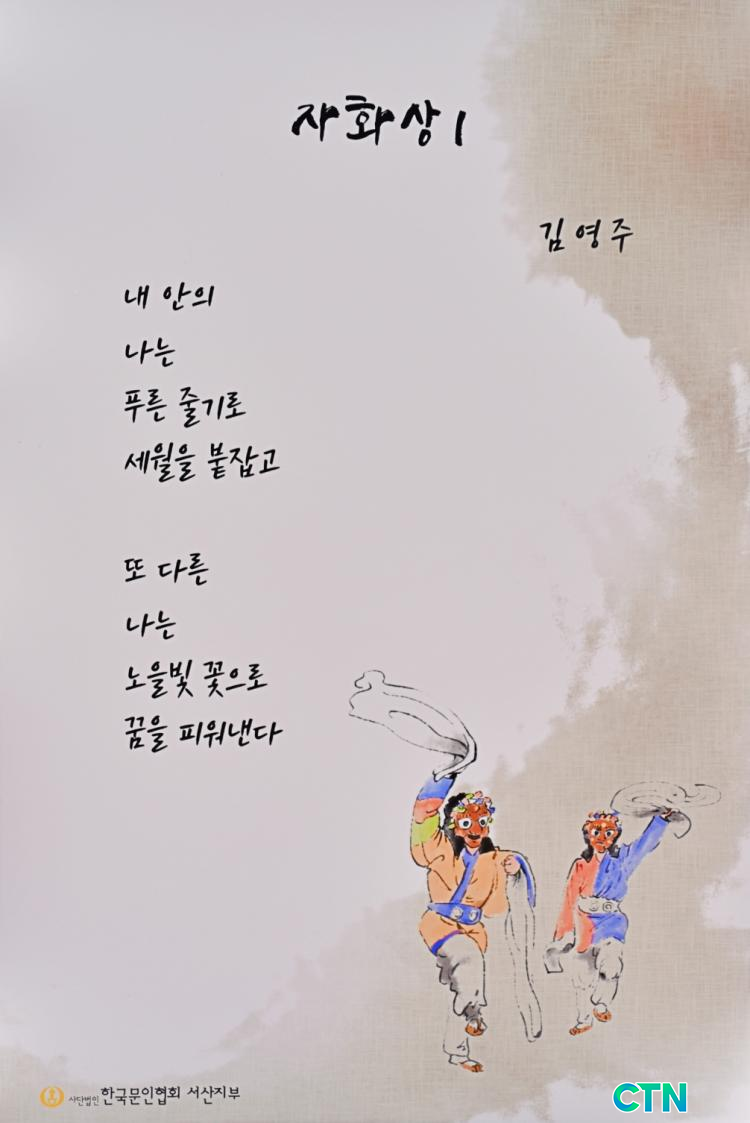 자화상 1
김영주
내 안의
나는
푸른 줄기로
세월을 붙잡고
또 다른
나는
노을빛 꽃으로
꿈을 피워낸다
사단법인 한국문인협회 서산지부
CTN